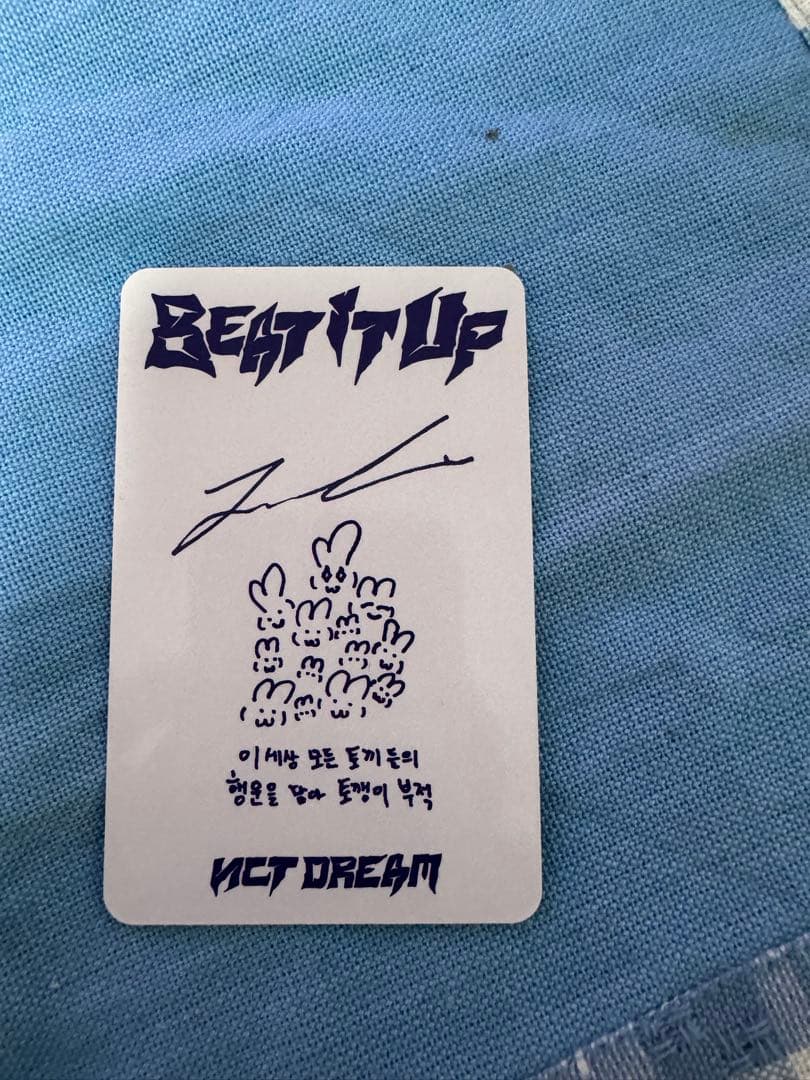 BEAT IT UP
이 세상 모든 토끼들의
행운을 담아 토깽이 부적
NCT DREAM